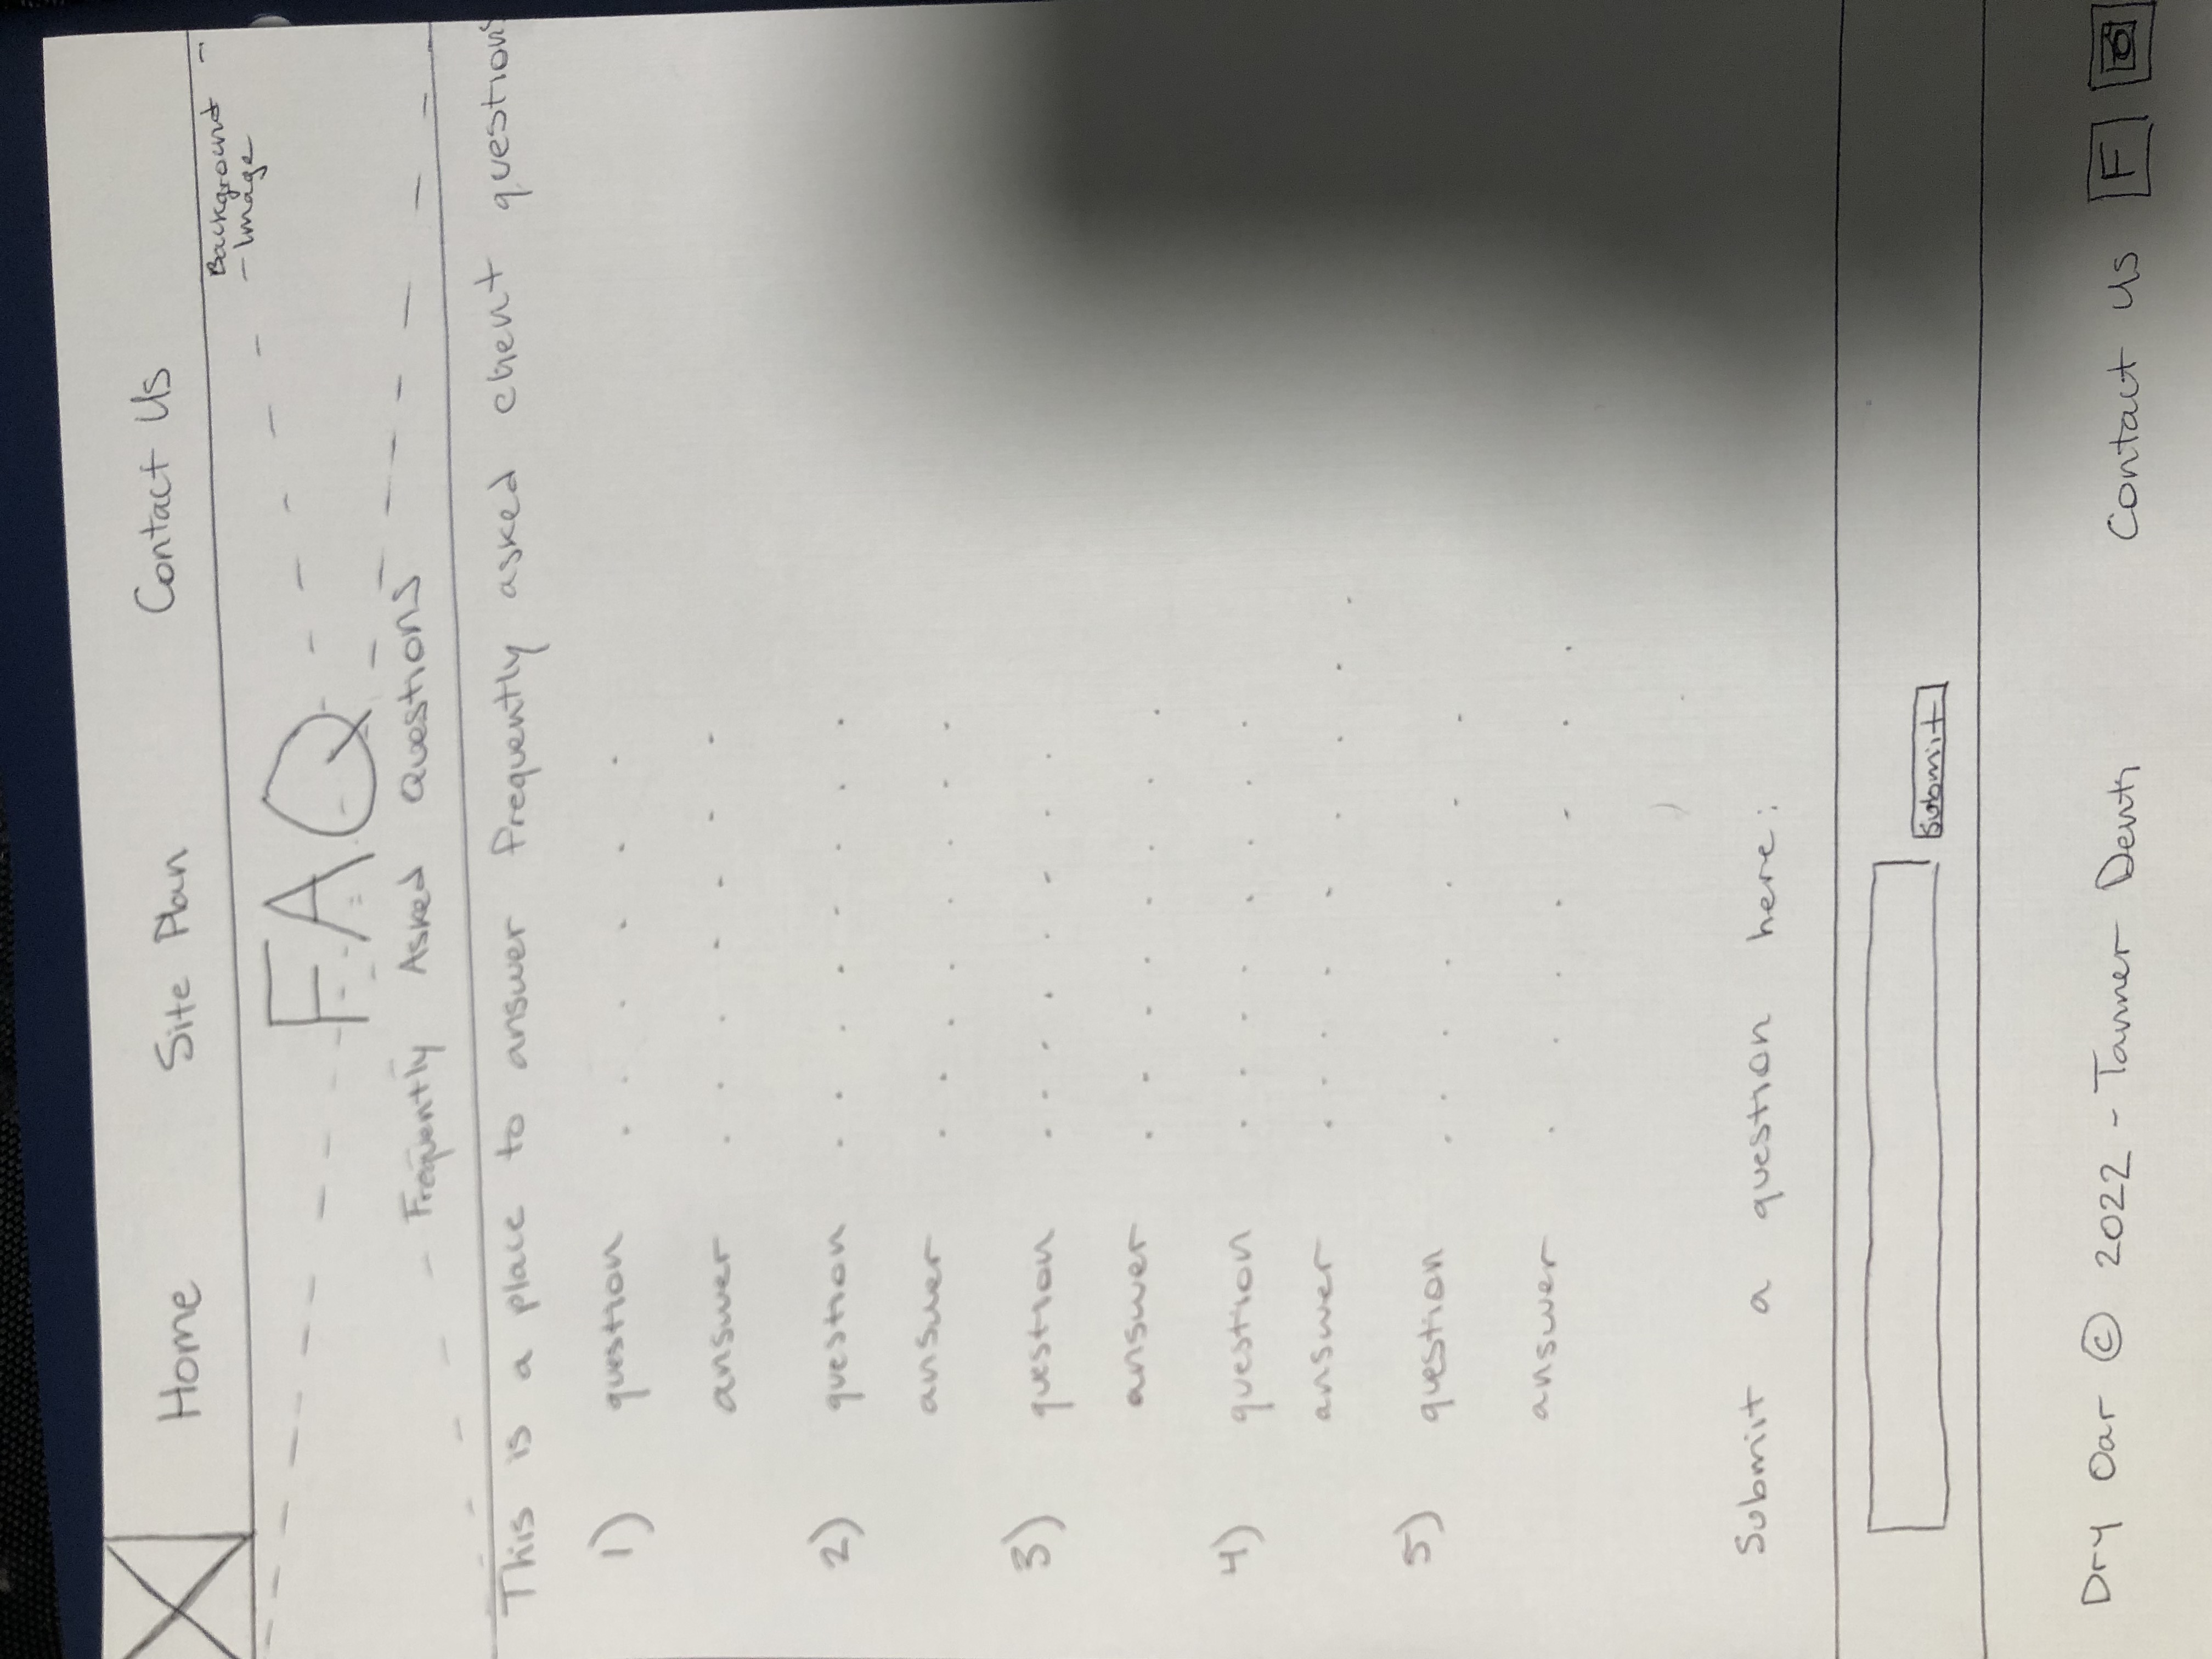 Home Site Plan Contact Us
Background
-Image
FAQ
Frequently Asked Questions
This is a place to answer frequently asked client questions
1) question . . . . . .
answer . . . . . . .
2) question . . . . . . . .
answer . . . . . . . .
3) question . . . . . . . .
answer . . . . . . . .
4) question . . . . . . . .
answer . . . . . . . . .
5) question . . . . . . .
answer . . . . . . .
Submit a question here:
Submit
Dry Oar © 2022 - Tanner
Contact Us F